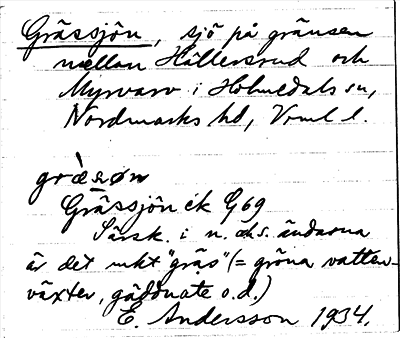 Grässjön, sjö på gränsen
mellan Hällersrud och
Myrvarv i Holmedals sn,
Nordmarks hd, Vrml l.
Grässjön ék G69
Särsk. i n. o. s. ändarna
är det mkt "gräs" (= gröna vatten-
växter, gäddnate o.d.)
E. Andersson 1934.